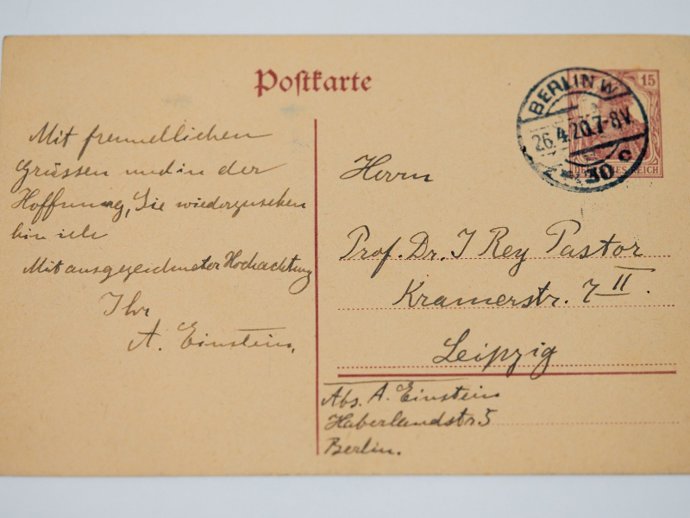 Postkarte
BERLIN W
26.4.20.7-8V.
* 30 c
15
DEUTSCHES REICH
Mit freundlichen
Grüssen und in der
Hoffnung, Sie wiederzusehen
bin ich
Mit ausgezeichneter Hochachtung
Ihr
A. Einstein.
Herrn
Prof. Dr. J Rey Pastor
Kramerstr. 7 II.
Leipzig
Abs. A. Einstein
Haberlandstr. 5
Berlin.